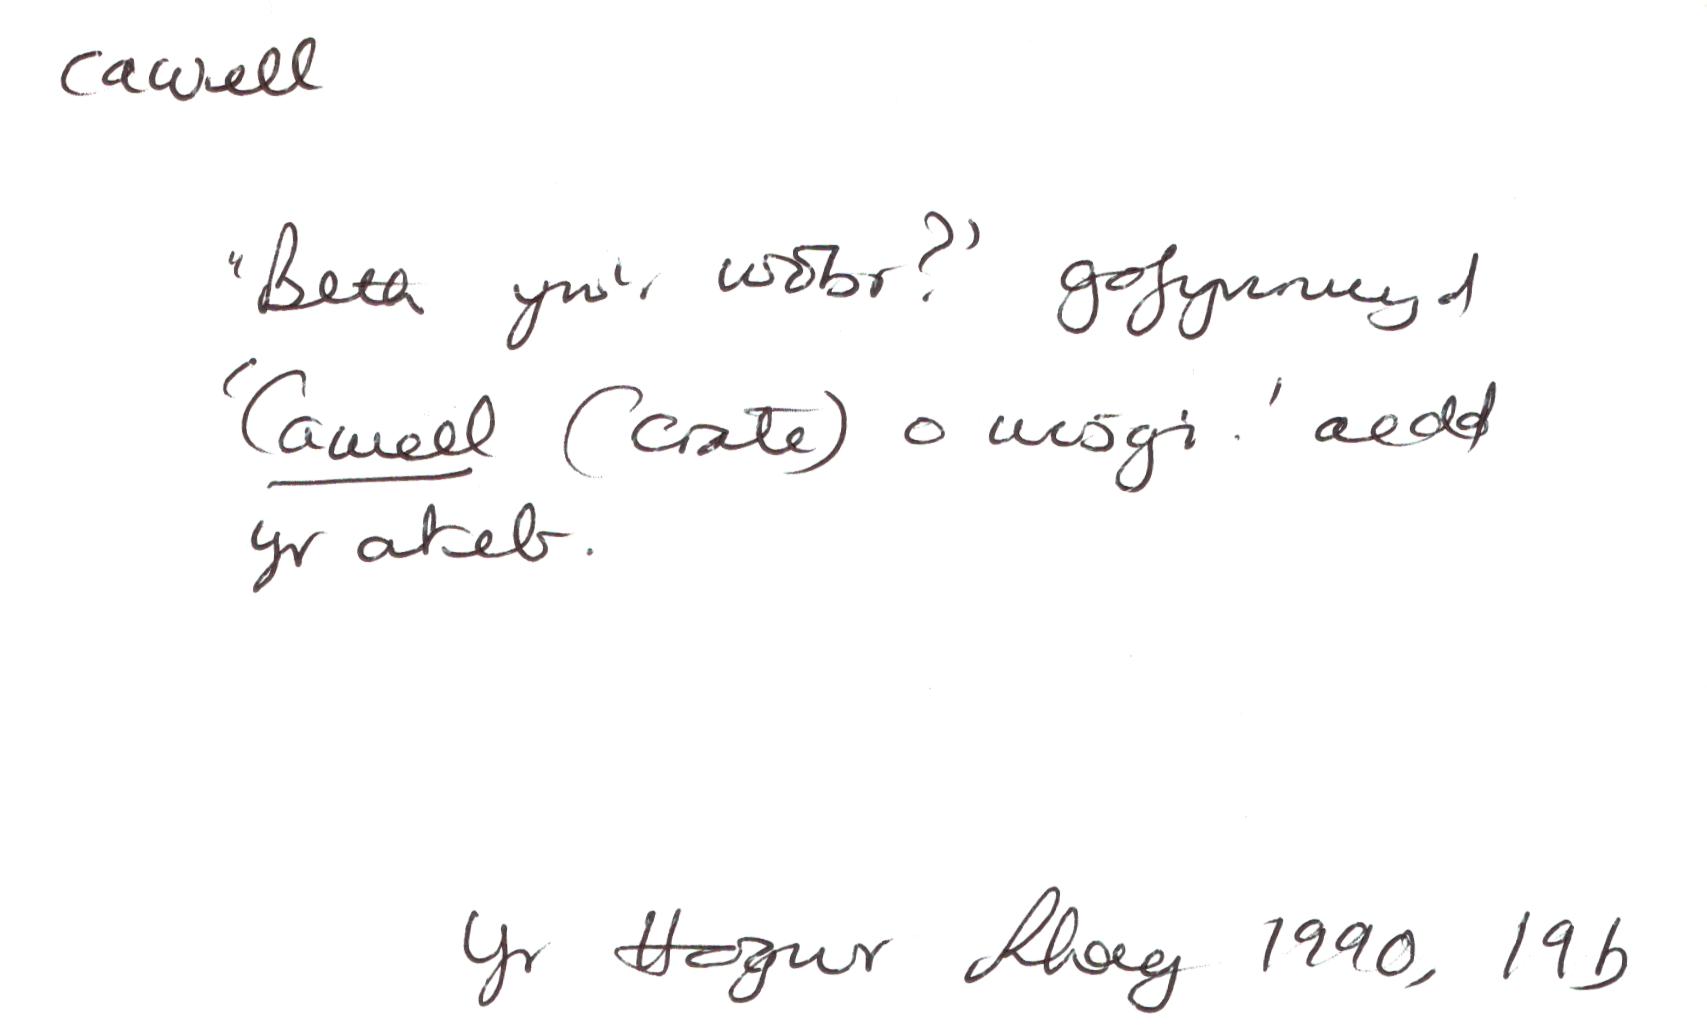 cawell
"Beth yw'r wôbr?" gofynnwyd
'Cawell (crate) o wisgi.' oedd
yr ateb.
Yr Hogwr Rhag 1990, 19b